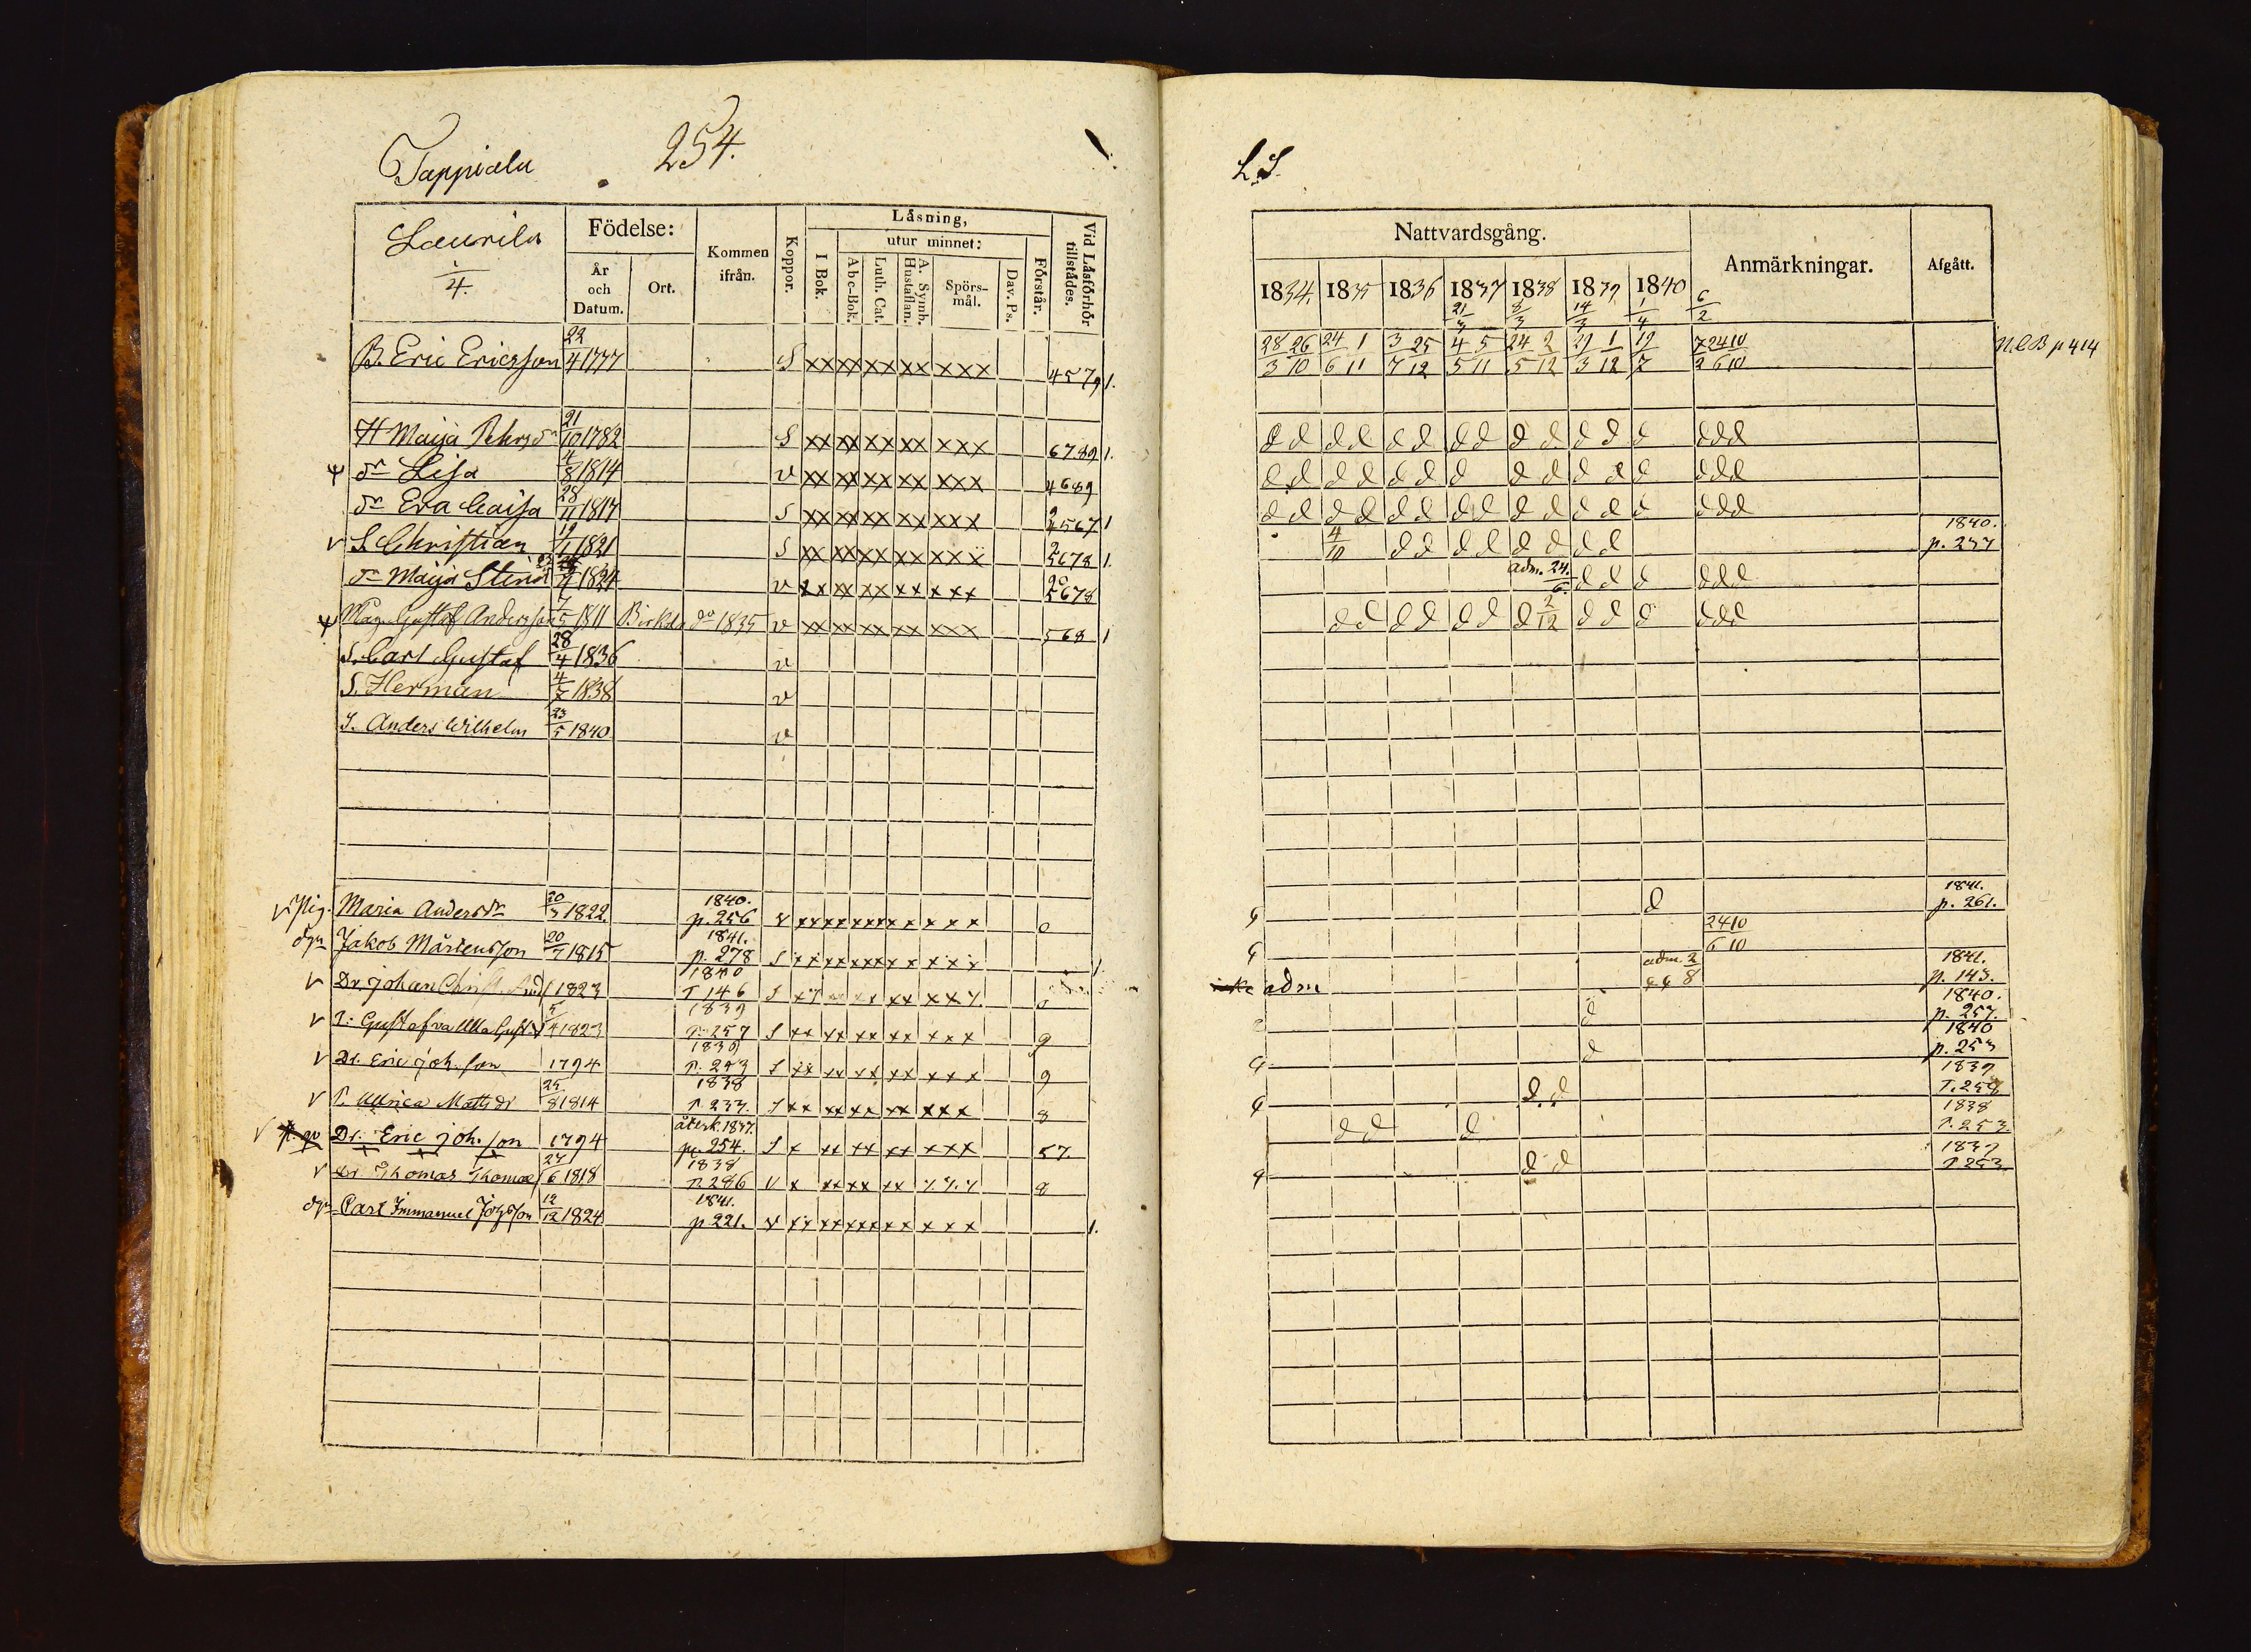 Tappiala 254.
Laurila
1/4.
Födelse:
År och Datum.
Ort.
Kommen ifrån.
Koppor.
Läsning,
I Bok.
utur minnet:
Abc-Bok.
Luth. Cat.
A. Symb. Hustaflan.
Spörs-mål.
Dav. Ps.
Förstår.
Vid Läsförhör tillstådes.
B. Eric Ericsson 22/4 1777 S xx xx xx xx xxx 4579 1.
H Maija Pehrsdr 21/10 1782 S xx xx xx xx xxx 6789 1.
dr Lisa 4/8 1814 v xx xx xx xx xxx 4689
dr Eva Caisa 28/11 1817 S xx xx xx xx xxx 2567 1
v S Christian 19/1 1821 S xx xx xx xx xxx 5678 1.
dr Maija Stina 1824 v xx xx xx xx xxx 5678
Måg. Gustaf Andersson 7/5 1811 Birkala do 1835 v xx xx xx xx xxx 568 1
S. Carl Gustaf 28/4 1836 v
S. Herman 4/7 1838 v
S. Anders Wilhelm 23/5 1840 v
v Pig. Maria Andersdr 20/3 1822 1840. p. 256 v xx xx xxx x x x x x 0
Jakob Mårtensson 20/7 1815 1841. p. 278 S xx xx xxx x x x x x 1.
v Dr. Johan Christ. And 1823 1840 P 146 S 0
v P: Gustafva Ulla Gust.d 5/4 1823 1839 P. 257 S xx xx xx xx xxx 9
v Dr. Eric Joh. son 1794 1839 P. 293 S xx xx xx xx xxx 9
v P. Ullrica Matts dr 25/8 1814 1838 P. 233. S xx xx xx xx xxx 8
v Dr. Eric Joh. son 1794 återk. 1837. p. 254. S x xx xx xx xxx 57.
v dr Thomas Thomas 27/6 1818 1838 P. 286 v x xx xx xx 8
Carl Immanuel Johsson 12/12 1824 1841. p 221. v xx xx xxx x x x x x 1.
L.S.
Nattvardsgång.
Anmärkningar.
Afgått.
1834. 1835 1836 1837 1838 1839 1840
21/3 8/3 14/3 1/4 6/2
28/3 26/10 24/6 1/11 3/7 25/12 4/5 5/11 24/5 2/12 29/3 1/12 19/7 7/2 24/6 10/10 N.C.B p 414
d d d d d d d d d d d d d ddd
d d d d d d d d d d d d ddd
d d d d d d d d d d d d d ddd
4/10 d d d d d d d d 1840. p. 237
adm. 24/6. d d d ddd
d d d d d d d 2/12 d d d ddd
d 1841. p. 261.
24/6 10/10
adm adm. 2/8 1841. p. 143.
d 1840. p. 257.
d 1840 p. 253
d. d 1839 P. 258
d d d 1838 P. 253.
d d 1839 P 253